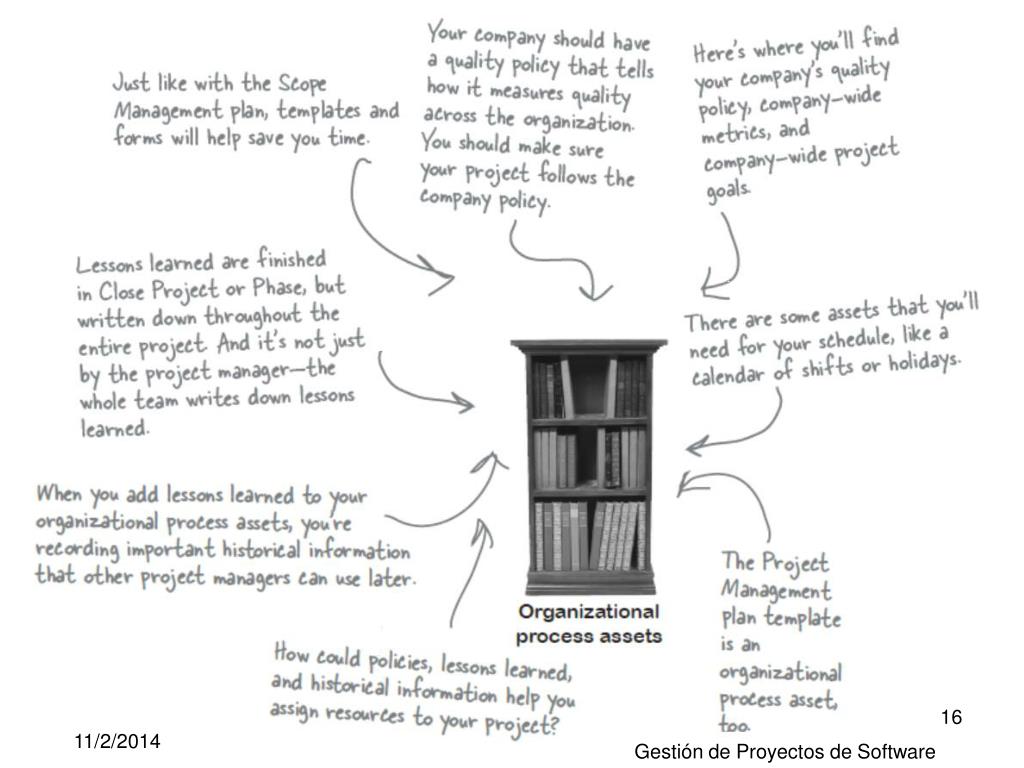 Just like with the Scope
Management plan, templates and
forms will help save you time.
Your company should have
a quality policy that tells
how it measures quality
across the organization.
You should make sure
your project follows the
company policy.
Here's where you'll find
your company's quality
policy, company-wide
metrics, and
company-wide project
goals.
Lessons learned are finished
in Close Project or Phase, but
written down throughout the
entire project. And it's not just
by the project manager—the
whole team writes down lessons
learned.
There are some assets that you'll
need for your schedule, like a
calendar of shifts or holidays.
When you add lessons learned to your
organizational process assets, you're
recording important historical information
that other project managers can use later.
The Project
Management
plan template
is an
organizational
process asset,
too.
Organizational
process assets
How could policies, lessons learned,
and historical information help you
assign resources to your project?
11/2/2014
Gestión de Proyectos de Software
16